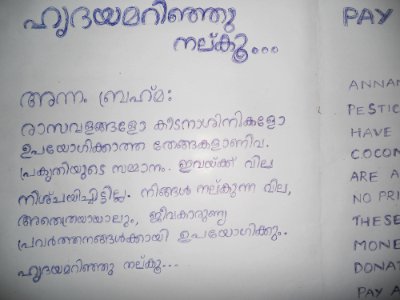 ഹൃദയമറിഞ്ഞു
നല്കൂ...
PAY
അന്നം ബ്രഹ്മ:
രാസവളങ്ങളോ കീടനാശിനികളോ
ഉപയോഗിക്കാത്ത തേങ്ങകളാണിവ.
പ്രകൃതിയുടെ സമ്മാനം. ഇവയ്ക്ക് വില
നിശ്ചയിച്ചിട്ടില്ല. നിങ്ങൾ നല്കുന്ന വില,
അതെത്രയായാലും, ജീവകാരുണ്യ
പ്രവർത്തനങ്ങൾക്കായി ഉപയോഗിക്കും.
ഹൃദയമറിഞ്ഞു നല്കൂ...
ANNAM
PESTIC
HAVE
COCON
ARE A
NO PRI
THESE
MONE
DONAT
PAY A